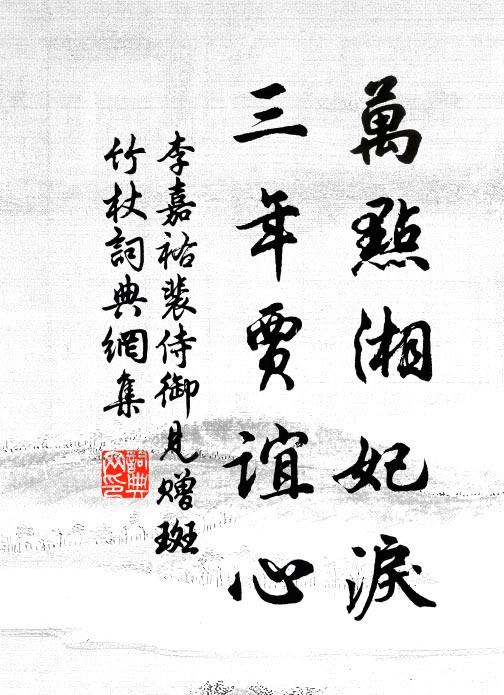 萬點湘妃淚
三年賈誼心
李嘉祐裴侍御見贈斑
竹杖詞典網集
詞典